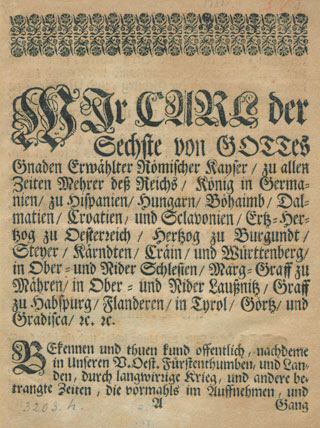 WIr CARL der
Sechste von GOTTes
Gnaden Erwählter Römischer Kayser / zu allen
Zeiten Mehrer deß Reichs / König in Germa-
nien / zu Hispanien / Hungarn / Böhaimb / Dal-
matien / Croatien / und Sclavonien / Ertz-Her-
tzog zu Oesterreich / Hertzog zu Burgundt /
Steyer / Kärndten / Crain / und Württenberg /
in Ober- und Nider Schlesien / Marg-Graff zu
Mähren / in Ober- und Nider Laußnitz / Graff
zu Habspurg / Flanderen / in Tyrol / Görtz / und
Gradisca / ꝛc. ꝛc.
BEkennen und thuen kund offentlich / nachdeme
in Unseren V. Oest. Fürstenthumben / und Lan-
den / durch langwirrige Krieg / und andere be-
trangte Zeiten / die vormahls im Auffnehmen / und
A Gang
3203.h.